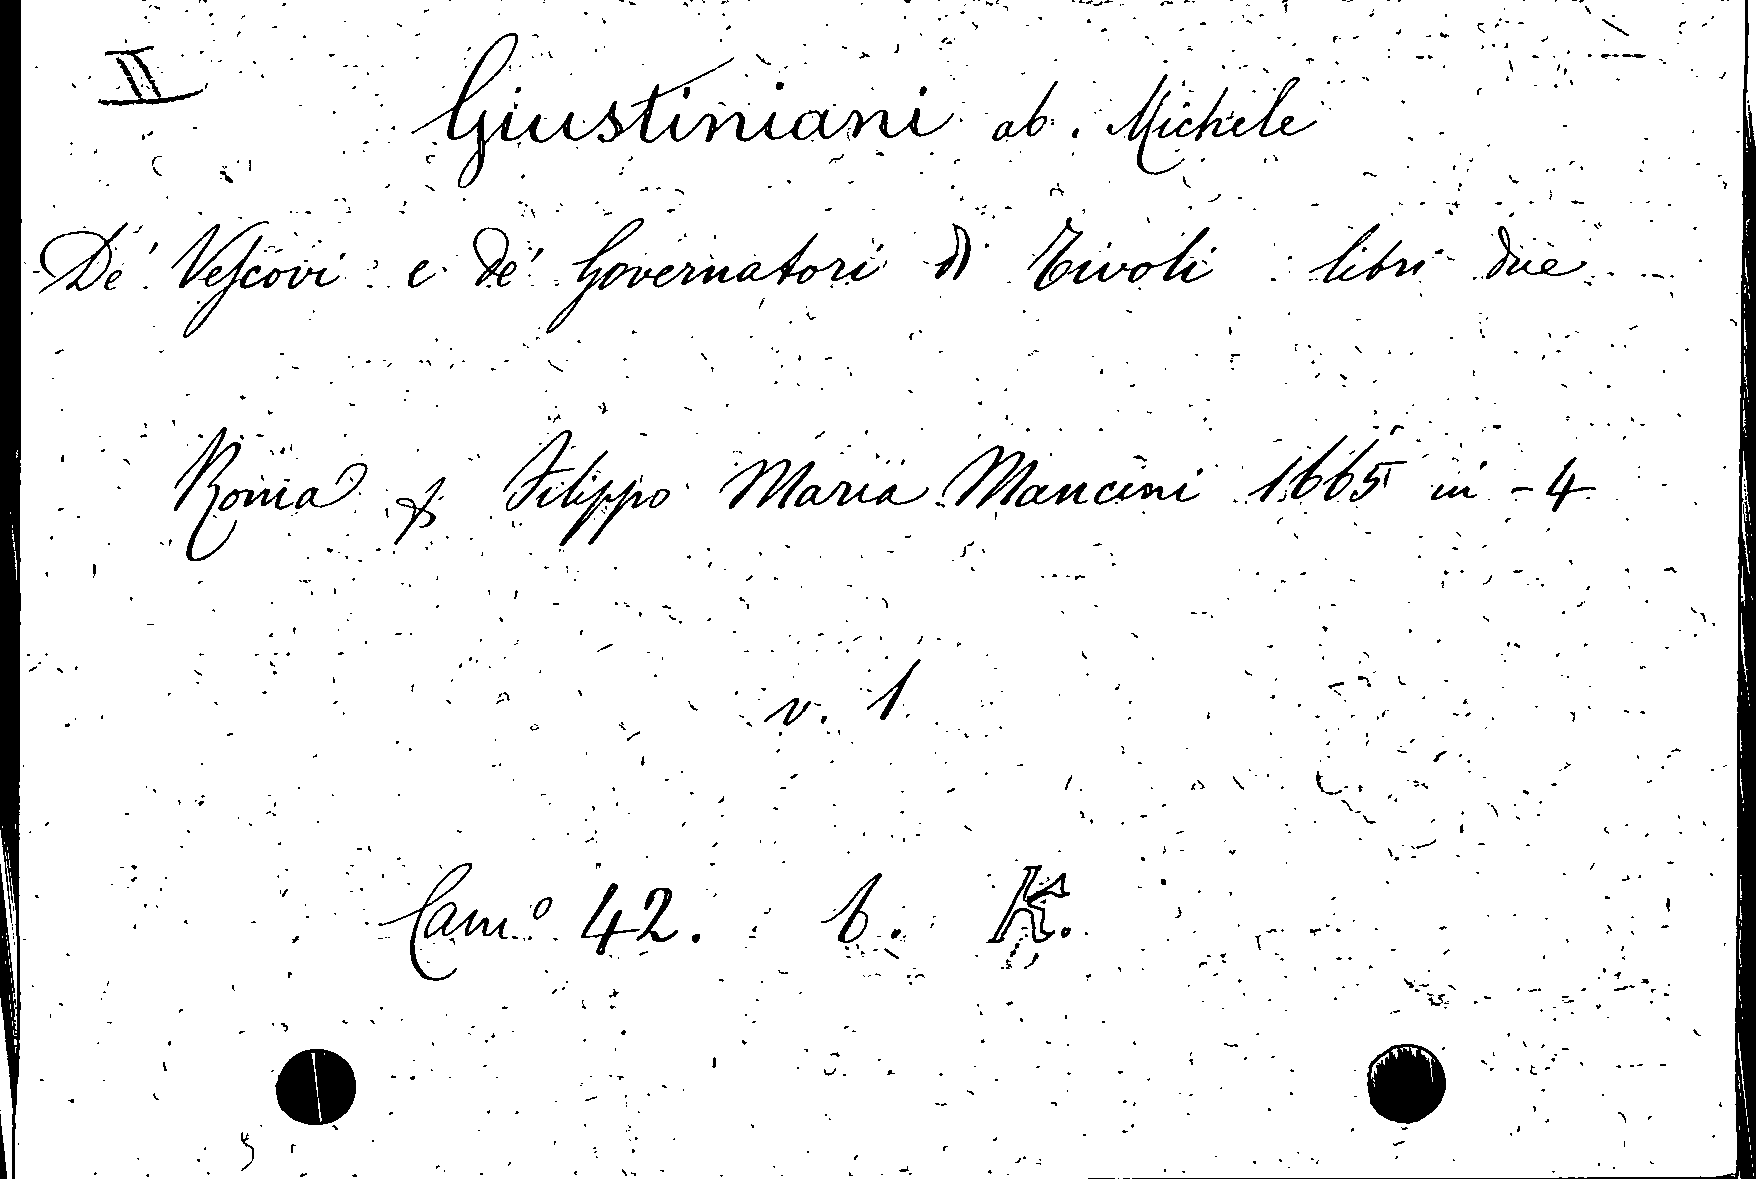 II
Giustiniani ab. Michele
De' Vescovi e de' Governatori di Tivoli libri due
Roma p Filippo Maria Mancini 1665 in - 4
v. 1
Camº 42. b. K.